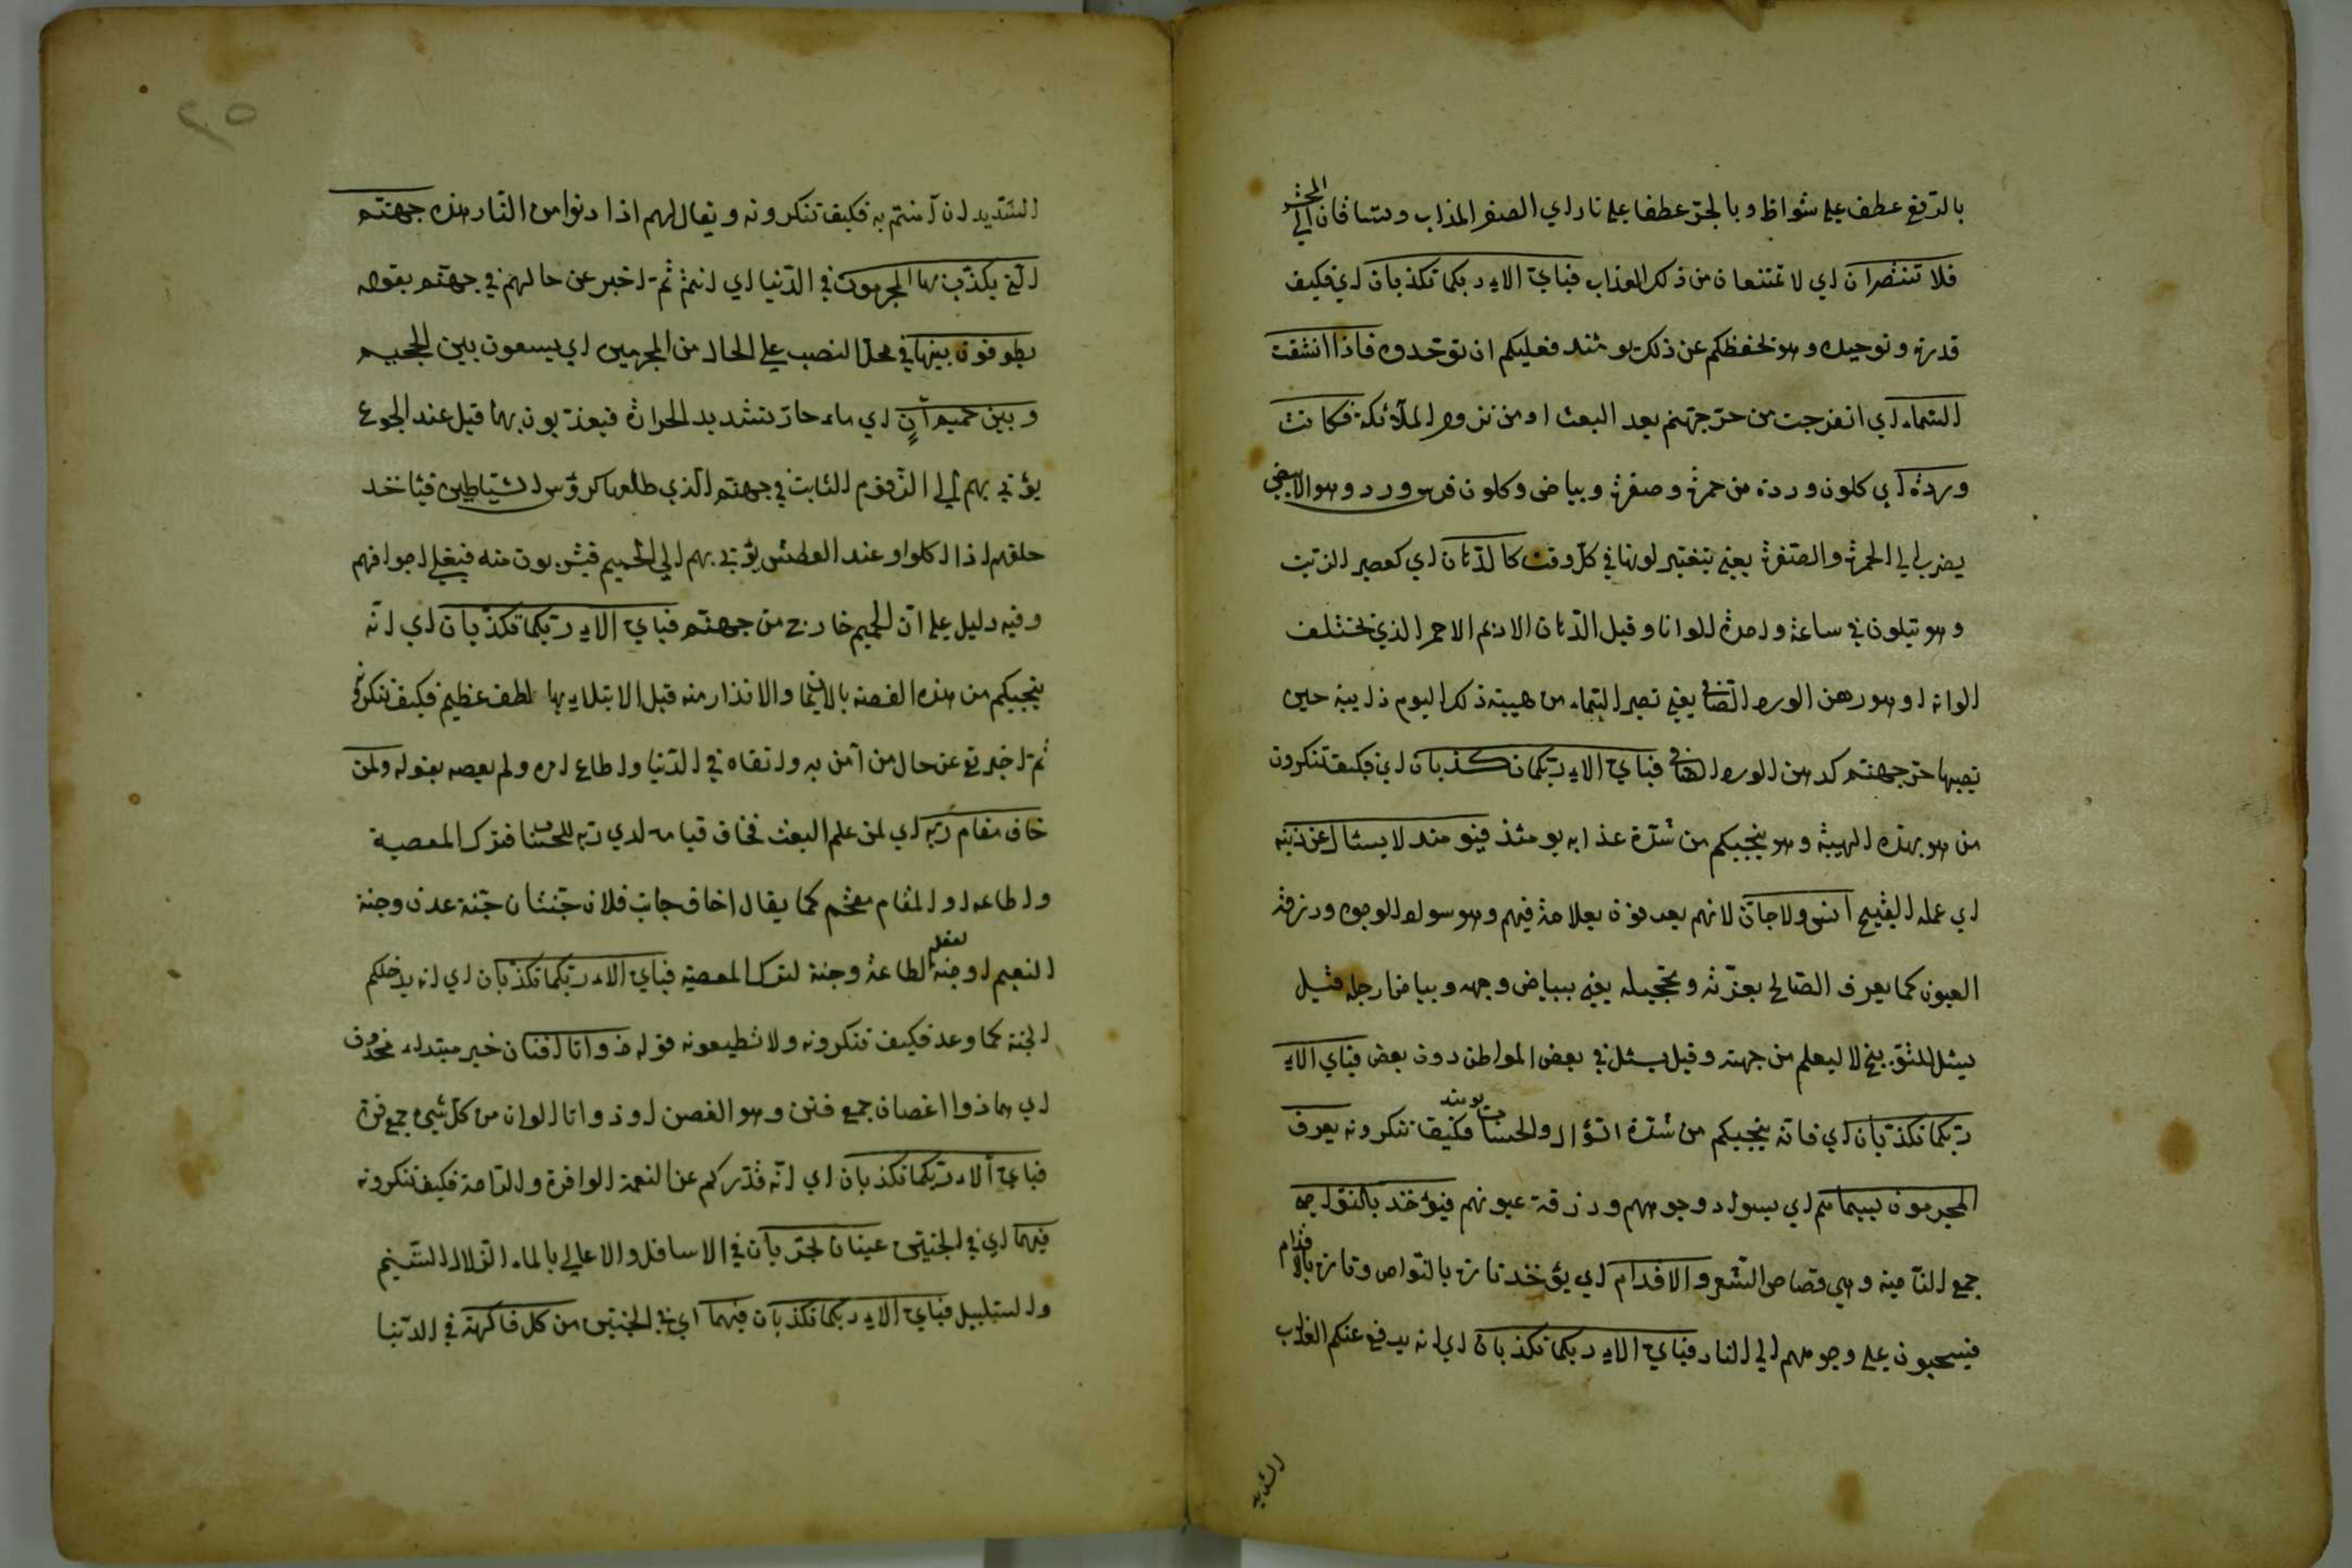 بالرفع عطف على شواظ وبالجر عطفا على نار اي الصفر المذاب وتساقان الي المحشر
فلا تنتصران اي لا تمتنعان من ذلك العذاب فباي الاء ربكما تكذبان اي فكيف
قدرته وتوحيده وهو تحفظكم عن ذلك يومئذ فعليكم ان توحدوه فاذا انشقت
السماء اي انفرجت من حر جهنم بعد البعث او من نزول الملائكة فكانت
وردة اي كلون وردة من حمرة وصفرة وبياض وكلون فرس ورد وهو الابيض
يضرب الي الحمرة والصفرة يعني يتغير لونها في كل وقت كالدهان اي كعصير الزيت
وهو يتلون في ساعة واحدة الوانا وقيل الدهان الاديم الاحمر الذي تختلف
الوانه او هو دهن الورد الصافي يعني تصير السماء من هيبة ذلك اليوم ذايبة حين
تصبها حر جهنم كدهن الورد الصافي فباي الاء ربكما تكذبان اي فكيف تنكرون
من هو بهذه الهيبة وهو ينجيكم من شدة عذابه يومئذ فيومئذ لا يسئال عن ذنبه
اي عمله القبيح انس ولا جان لانهم يعرفون بعلامة فيهم وهو سواد الوجوه وزرقة
العيون كما يعرف الصالح بغرته وتحجيله يعني ببياض وجهه وبياض ارجله قيل
يسئل للتوبيخ لا ليعلم من جهته وقيل يسئل في بعض المواطن دون بعض فباي الاء
ربكما تكذبان اي فانه ينجيكم من شدة السؤال والحساب يومئذ فكيف تنكرونه يعرف
المجرمون بسيماهم اي بسواد وجوههم وزرقة عيونهم فيؤخذ بالنواصي
جمع الناصية وهي قصاص الشعر والاقدام اي يؤخذ تارة بالنواص وتارة بالاقدام
فيسحبون علي وجوههم الي النار فباي الاء ربكما تكذبان اي انه يدفع عنكم العذاب
الشديد
٢٥
الشديد ان آمنتم به فكيف تنكرونه ويقال لهم اذا دنوا من النار هذه جهنم
التي يكذب بها المجرمون في الدنيا اي انتم ثم اخبر عن حالهم في جهنم بقوله
يطوفون بينها في محل النصب علي الحال من المجرمين اي يسعون بين الجحيم
وبين حميم آن اي ماء حار شديد الحرارة فيعذبون بهما قيل عند الجوع
يؤتي بهم الي الزقوم الثابت في جهنم الذي طلعها كرؤس الشياطين فياخذ
حلقهم اذا اكلوا وعند العطش يؤتي بهم الي الحميم فيشربون منه فيغلي اجوافهم
وفيه دليل علي ان الحميم خارج من جهنم فباي الاء ربكما تكذبان اي انه
ينجيكم من هذه الغصة بالايمان والانذار منه قبل الابتلاء بها لطف عظيم فكيف تنكرونه
ثم اخبر تع عن حال من آمن به واتقاه في الدنيا واطاع امره ولم يعصه بقوله ولمن
خاف مقام ربه اي لمن علم البعث فخاف قيامه لدي ربه للحساب فترك المعصية
واطاعه او المقام مقحم كما يقال اخاف جانب فلان جنتان جنة عدن وجنة
النعيم او جنة لفعل الطاعة وجنة لترك المعصية فباي الاء ربكما تكذبان اي انه يدخلكم
الجنة كما وعد فكيف تنكرونه ولا تطيعونه قوله ذواتا افنان خبر مبتداء محذوف
اي هما ذوا اغصان جمع فنن وهو الغصن او ذواتا الوان من كل شيء جمع فن
فباي آلاء ربكما تكذبان اي انه قدركم عن النعمة الوافرة والتامة فكيف تنكرونه
فيهما اي في الجنتين عينان تجريان في الاسافل والاعالي بالماء الزلال التسنيم
والسلسبيل فباي الاء ربكما تكذبان فيهما اي في الجنتين من كل فاكهة في الدنيا